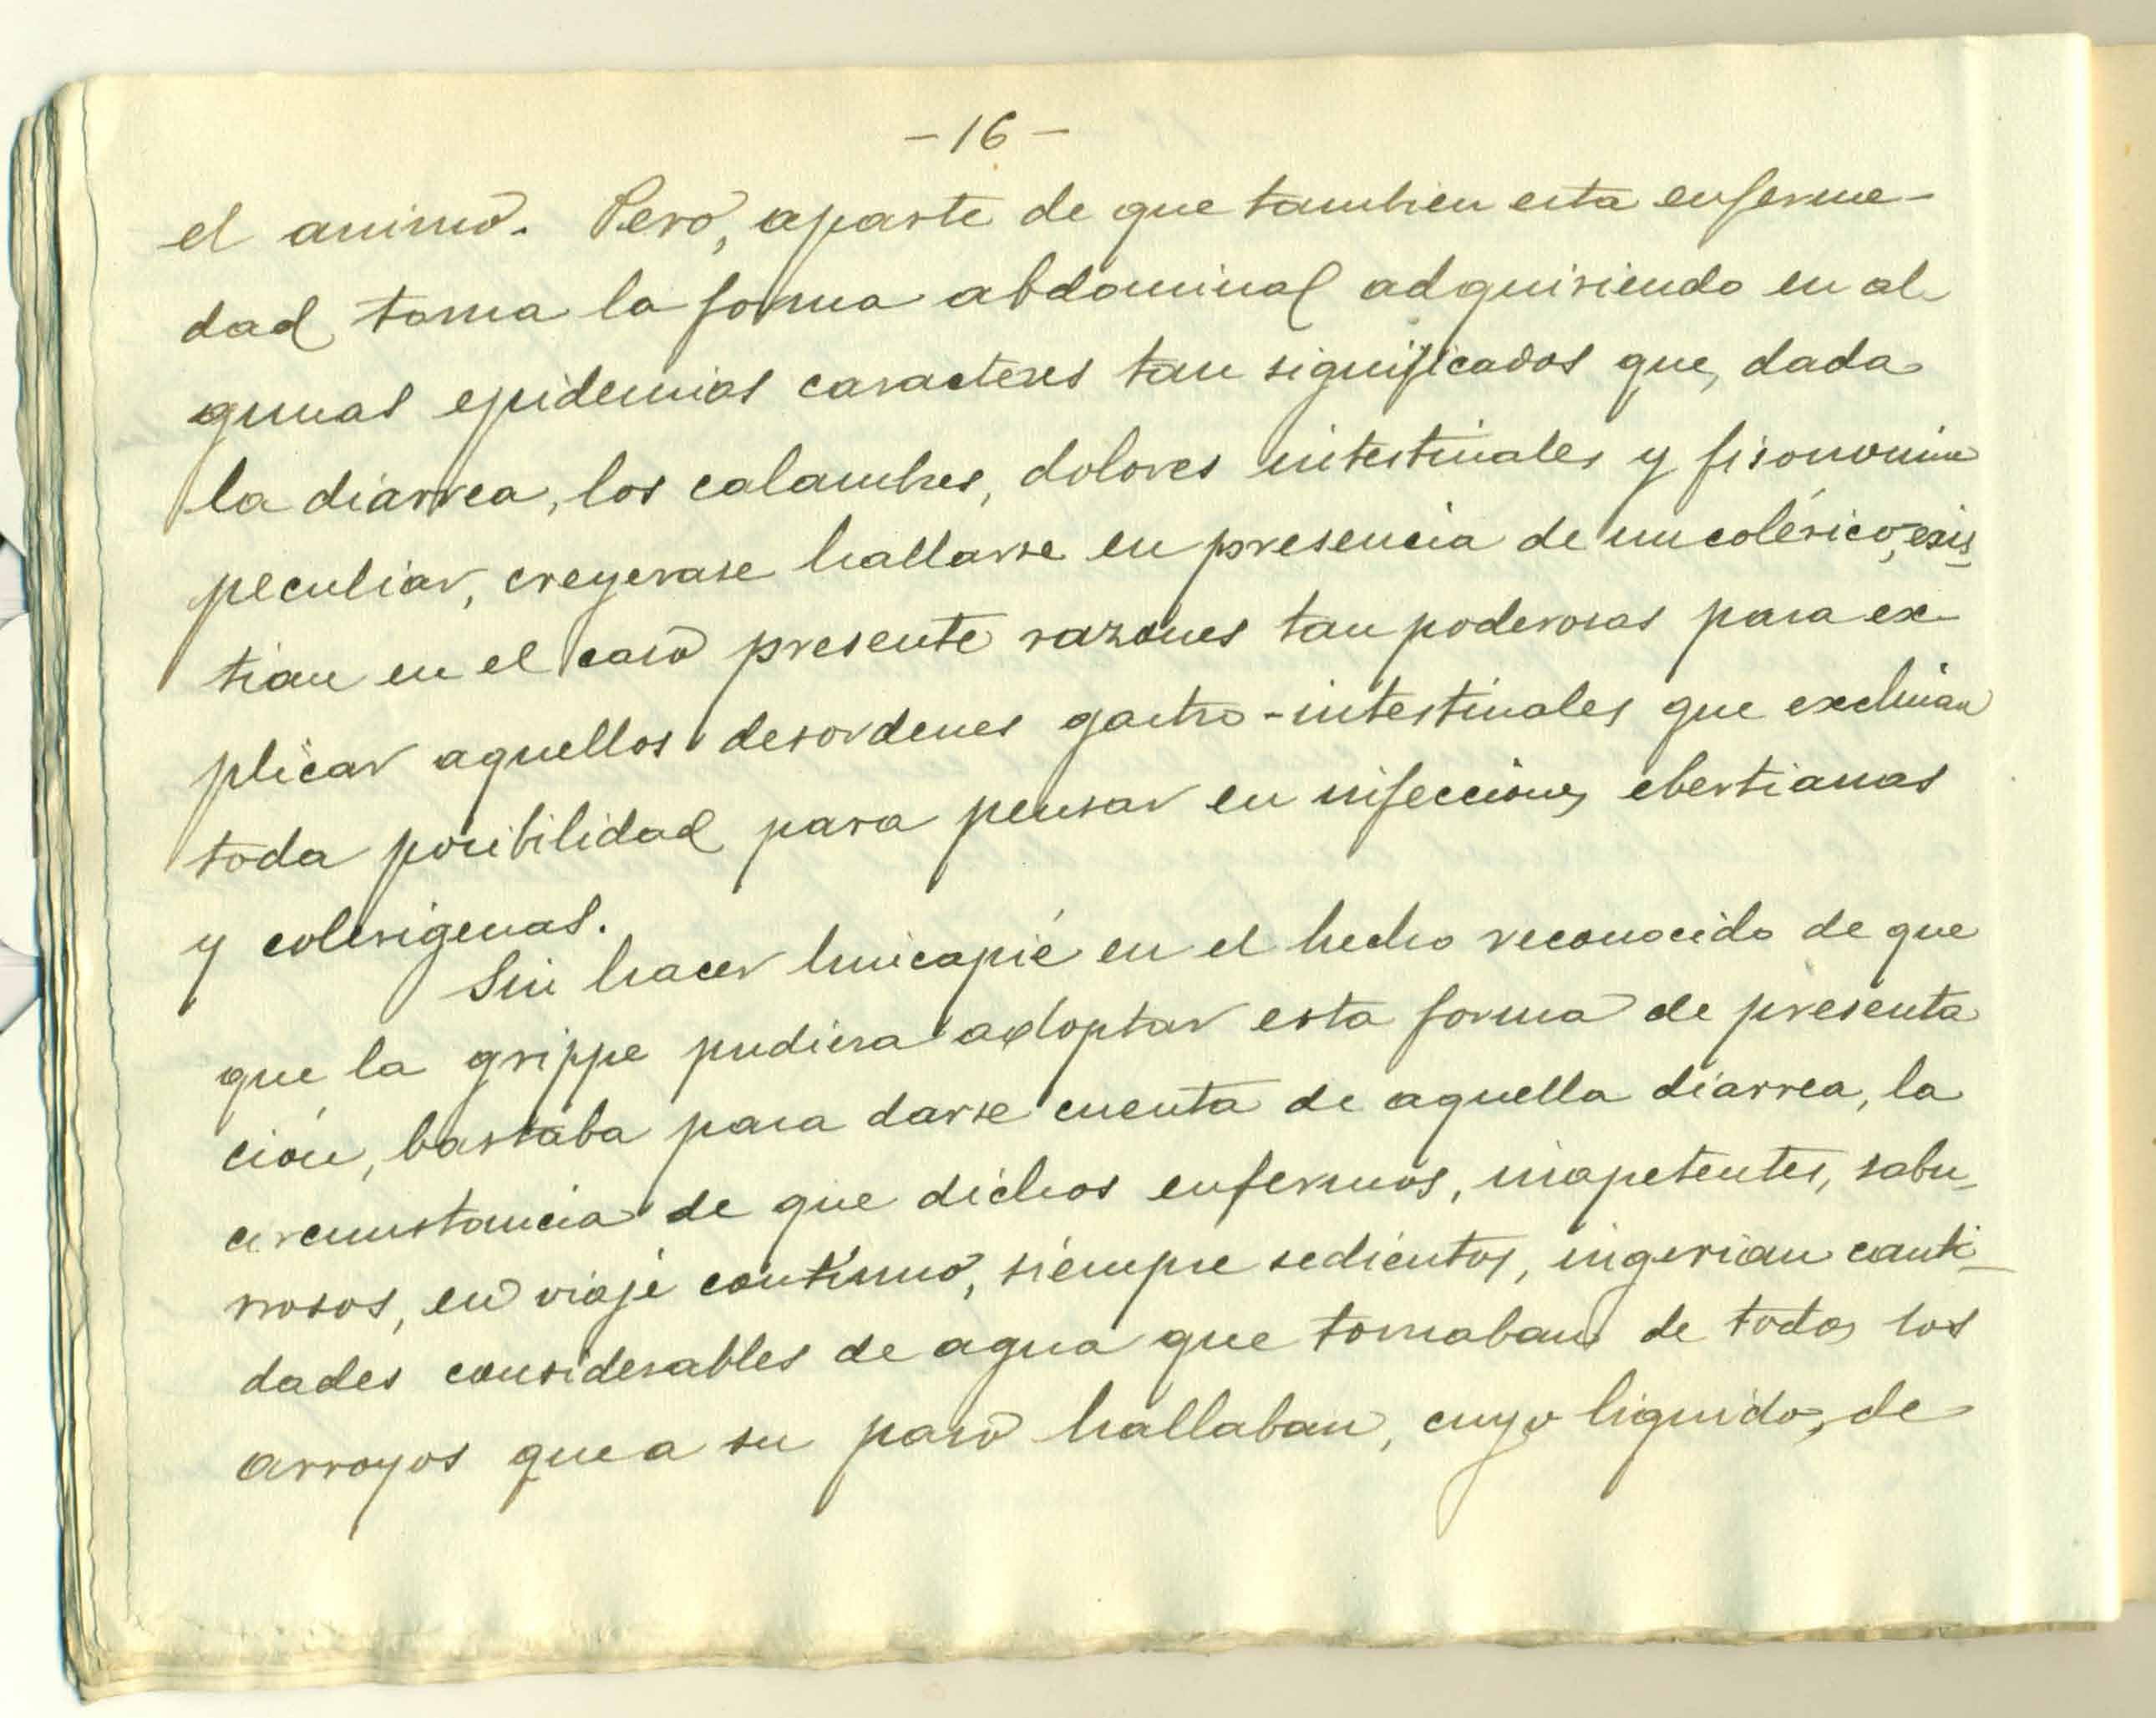 - 16 -
el animo. Pero, aparte de que tambien esta enferme-
dad toma la forma abdominal adquiriendo en al-
gunas epidemias caracteres tan significados que, dada
la diarrea, los calambres, dolores intestinales y fisonomia
peculiar, creyerase hallarse en presencia de un colérico, exis
tian en el caso presente razones tan poderosas para ex-
plicar aquellos desordenes gastro-intestinales que excluian
toda posibilidad para pensar en infecciones ebertianas
y colerigenas.
Sin hacer hincapié en el hecho reconocido de que
que la grippe pudiera adoptar esta forma de presenta
ción, bastaba para darse cuenta de aquella diarrea, la
circunstancia de que dichos enfermos, inapetentes, sabu-
rrosos, en viaje contínuo, siempre sedientos, ingerian canti-
dades considerables de agua que tomaban de todos los
arroyos que a su paso hallaban, cuyo liquido, de